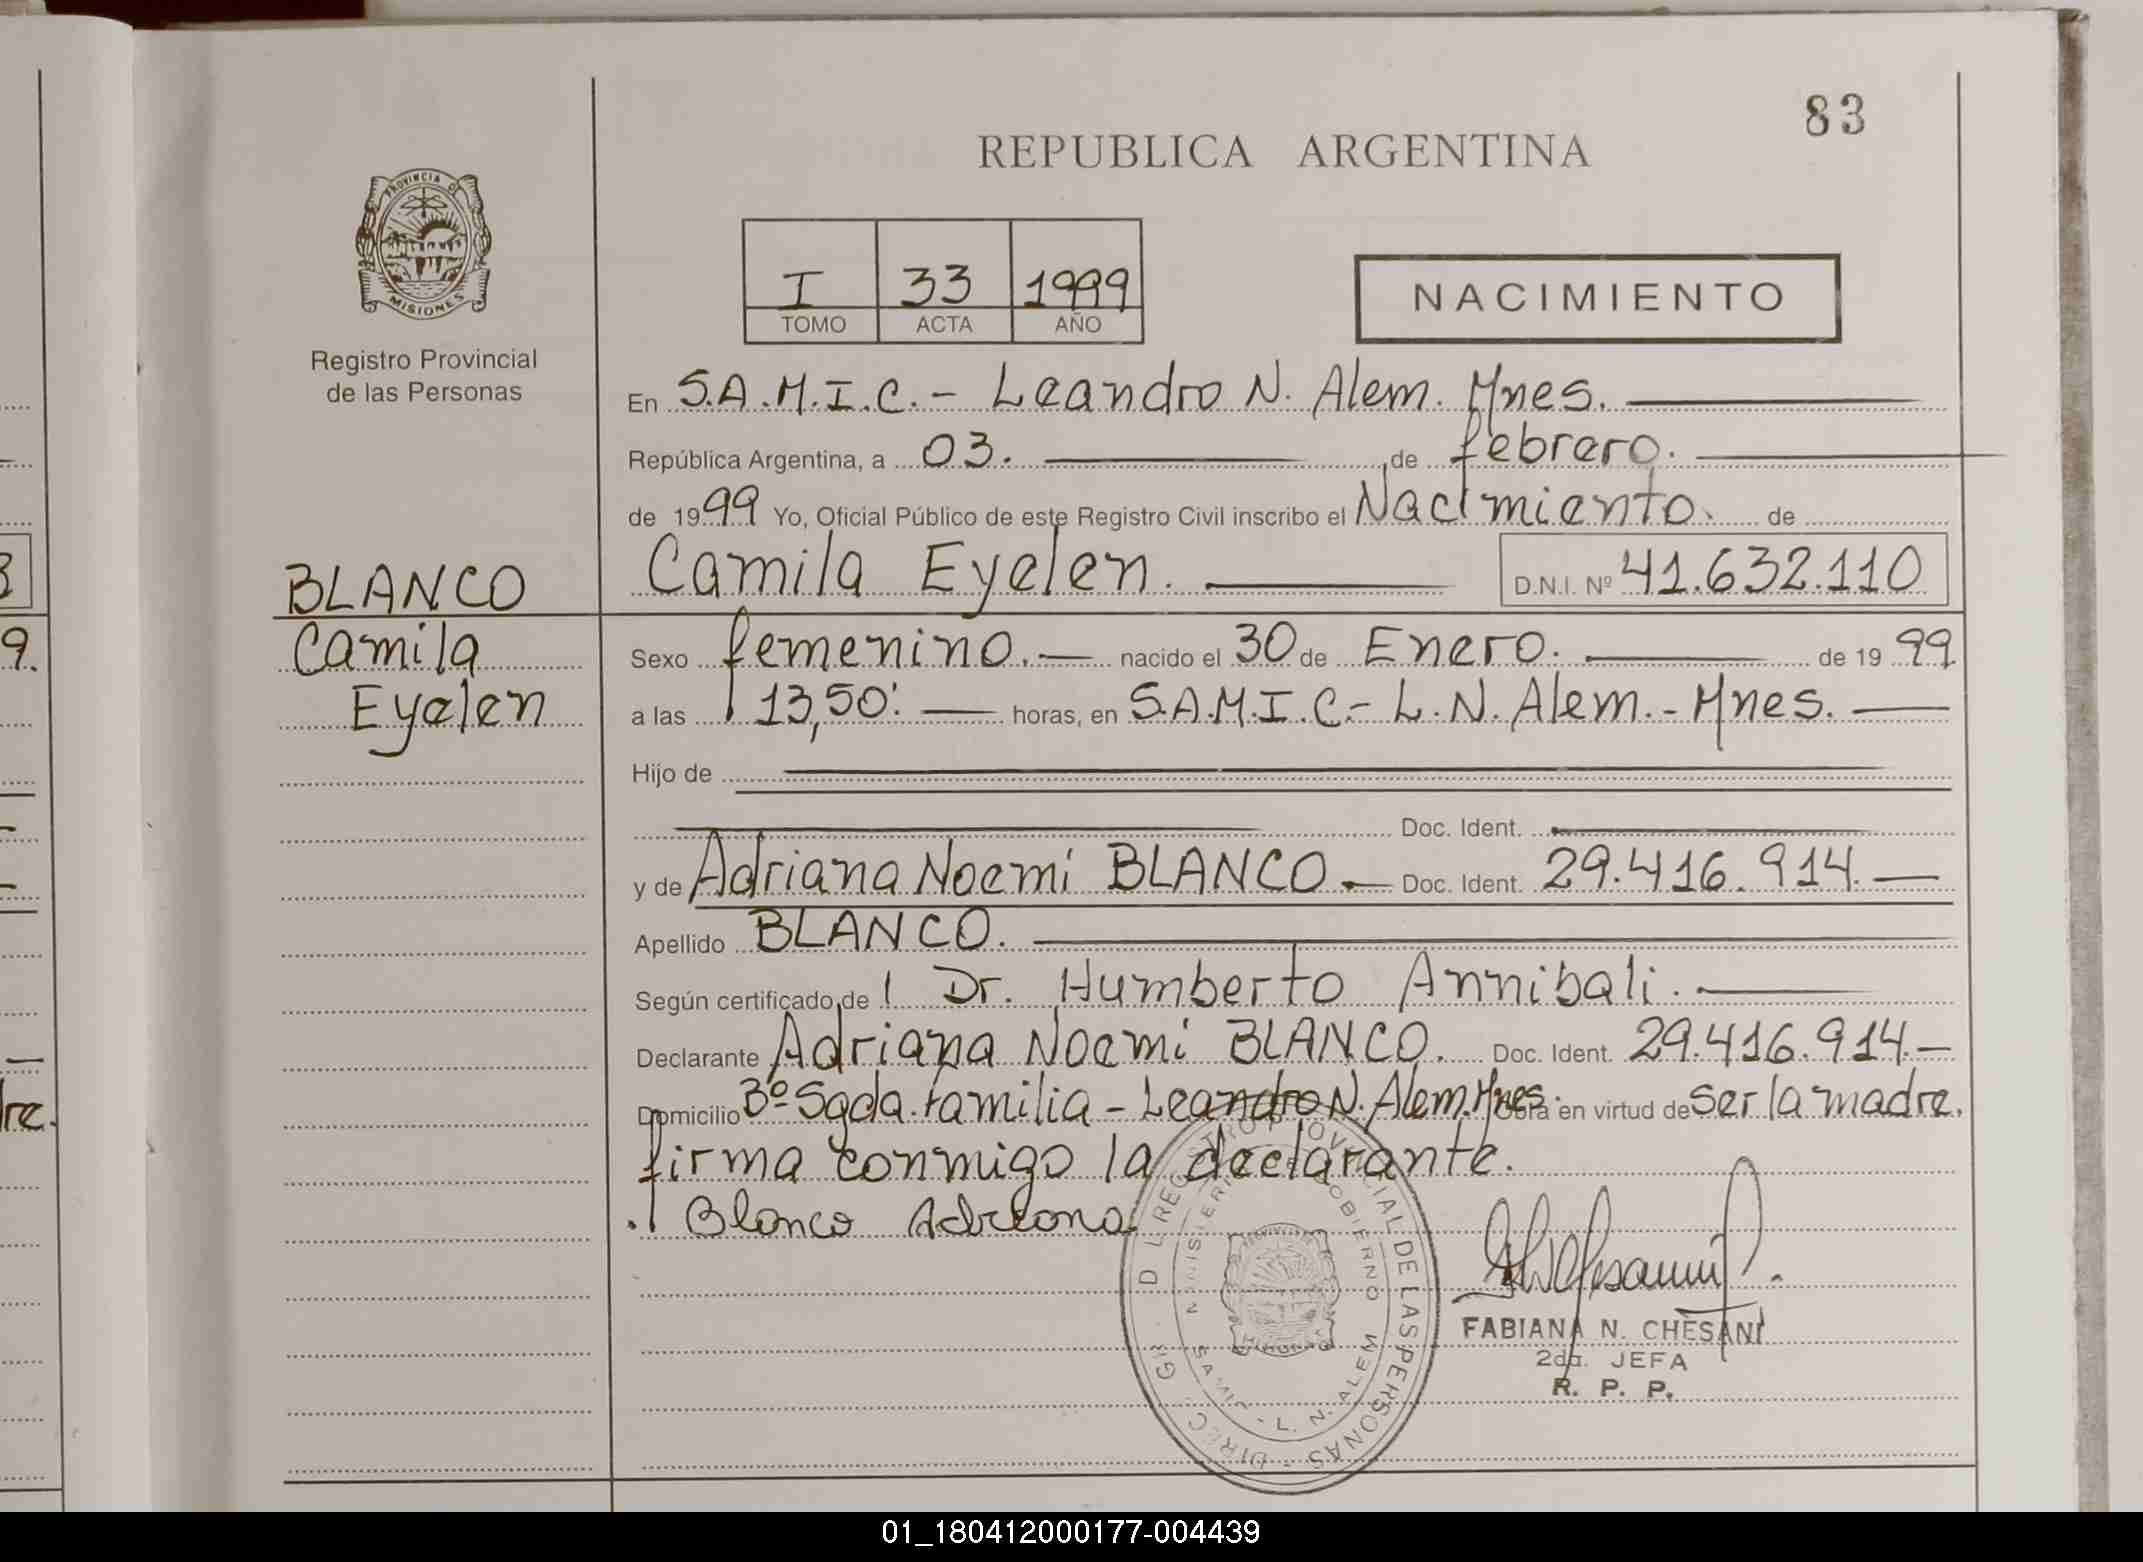 83
REPUBLICA ARGENTINA
PROVINCIA D
MISIONES
Registro Provincial
de las Personas
I 33 1999
TOMO ACTA AÑO
NACIMIENTO
En S.A.M.I.C. - Leandro N. Alem. Mnes.
República Argentina, a 03. de febrero.
de 1999 Yo, Oficial Público de este Registro Civil inscribo el Nacimiento. de
Camila Eyelen. D.N.I. Nº 41.632.110
BLANCO
Camila
Eyelen
Sexo femenino. nacido el 30 de Enero. de 1999
a las 13,50' horas, en S.A.M.I.C.- L.N. Alem.- Mnes.
Hijo de
Doc. Ident.
y de Adriana Noemi BLANCO.- Doc. Ident. 29.416.914.-
Apellido BLANCO.
Según certificado de Dr. Humberto Annibali.
Declarante Adriana Noemi BLANCO. Doc. Ident. 29.416.914.-
Domicilio Bº Sgda. familia - Leandro N. Alem. Mnes. en virtud de ser la madre.
firma conmigo la declarante.
Blanco Adriana
FABIANA N. CHESANI
2da. JEFA
R. P. P.
9.
re.
01_180412000177-004439